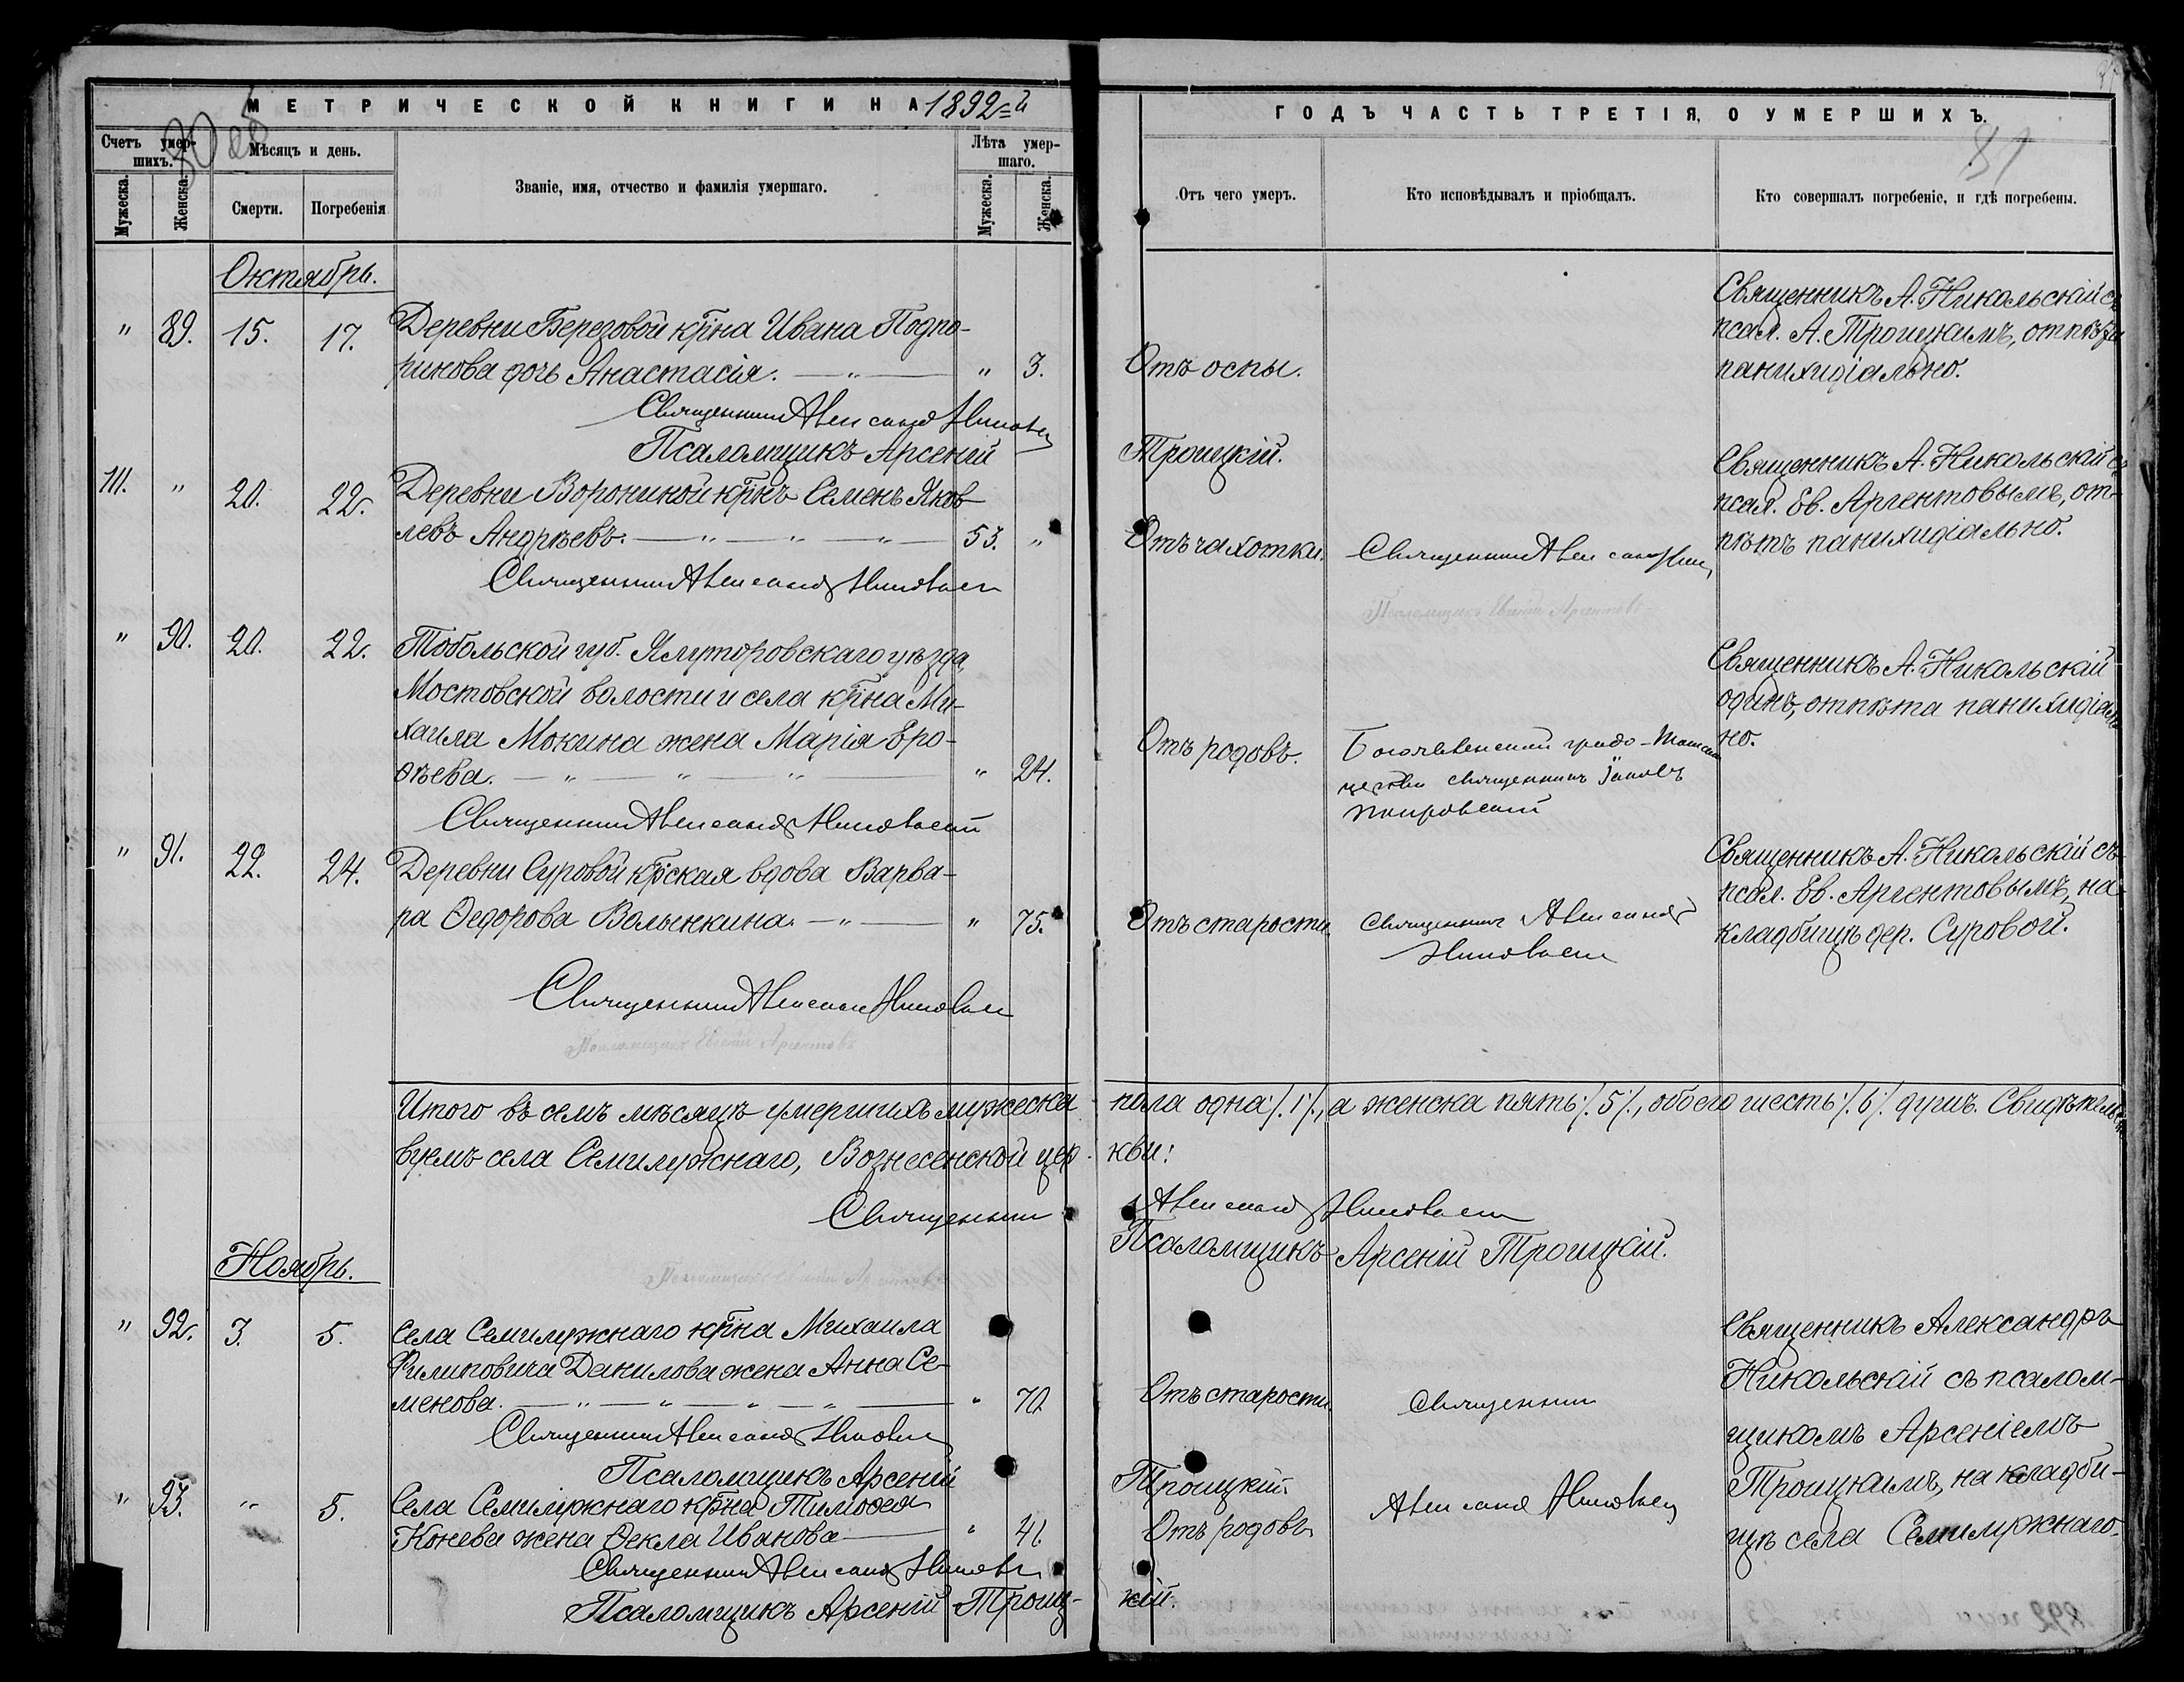 МЕТРИЧЕСКОЙ КНИГИ НА 1892=й
ГОДЪ ЧАСТЬ ТРЕТІЯ, О УМЕРШИХЪ.
81
Счетъ умер-
шихъ.
Мѣсяцъ и день.
Званіе, имя, отчество и фамилія умершаго.
Лѣта умер-
шаго.
Мужеска.
Женска.
Смерти.
Погребенія
Мужеска.
Женска.
Отъ чего умеръ.
Кто исповѣдывалъ и пріобщалъ.
Кто совершалъ погребеніе, и гдѣ погребены.
Октябрь.
" 89. 15. 17. Деревни Березовой кр̅на Ивана Подпо-
ринова дочь Анастасія. — " — " 3.
Отъ оспы.
Священникъ А. Никольскій съ
псал. А. Троицкимъ, отпѣта
панихидіально.
Священникъ Александръ Никольскій
Псаломщикъ Арсеній
Троицкій.
111. " 20. 22. Деревни Ворониной кр̅нъ Семенъ Яков-
левъ Андреевъ. — " — " — " — 53. "
Отъ чахотки.
Священникъ Александръ Ник
Псаломщикъ Евгеній Аргентовъ
Священникъ А. Никольскій съ
псал. Ев. Аргентовымъ, от-
пѣтъ панихидіально.
Священникъ Александръ Никольскій
" 90. 20. 22. Тобольской губ. Ялуторовскаго уѣзда
Мостовской волости и села кр̅на Ми-
хаила Мокина жена Марія Еро-
ѳѣева. — " — " — " — " 24.
Отъ родовъ.
Богоявленской градо-Томской
церкви священникъ Іаковъ
Покровскій
Священникъ А. Никольскій
одинъ, отпѣта панихидіаль
но.
Священникъ Александръ Никольскій
" 91. 22. 24. Деревни Суровой кр̅ская вдова Варва-
ра Ѳедорова Волынкина. — " — " 75.
Отъ старости
Священникъ Александръ
Никольскій
Священникъ А. Никольскій съ
псал. Ев. Аргентовымъ, на
кладбищѣ дер. Суровой.
Священникъ Александръ Никольскій
Псаломщикъ Евгеній Аргентовъ
Итого въ семъ мѣсяцѣ умершихъ мужеска пола одна /.1/., а женска пять /.5/., обоего шесть /.6/. душъ. Свидѣтельст
вуемъ села Семилужнаго, Вознесенской цер-кви:
Священникъ Александръ Никольскій
Псаломщикъ Арсеній Троицкій.
Псаломщикъ Евгеній Аргентовъ
Ноябрь.
" 92. 3. 5. Села Семилужнаго кр̅на Михаила
Филиповича Данилова жена Анна Се-
менова. — " — " — " — " — " 70.
Отъ старости
Священникъ
Священникъ Александръ
Никольскій съ псалом-
щикомъ Арсеніемъ
Троицкимъ, на кладби-
щѣ села Семилужнаго.
Священникъ Александръ Никольскій
Псаломщикъ Арсеній
Троицкій.
" 93. " 5. Села Семилужнаго кр̅на Тимоѳея
Конева жена Ѳекла Иванова — " 41.
Отъ родовъ
Александръ Никольскій
Священникъ Александръ Никольскій
Псаломщикъ Арсеній Троиц-
кій.